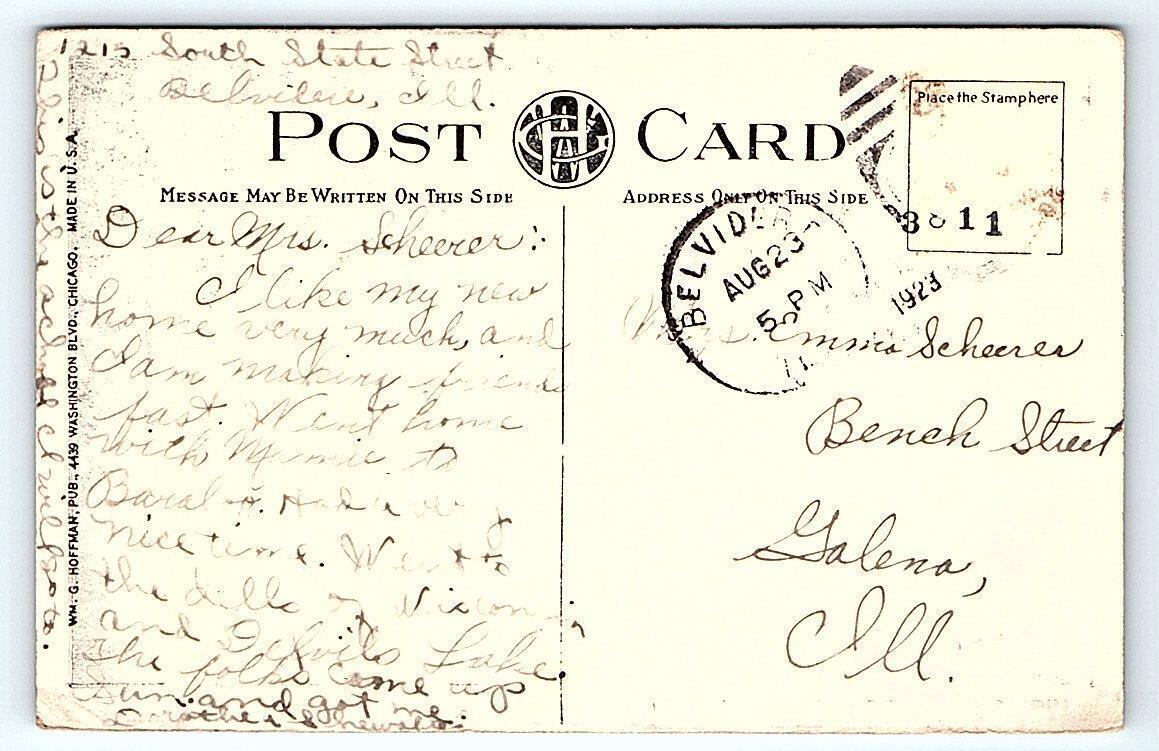 1215 South State Street
Belvidere, Ill.
POST CARD
Place the Stamp here
MESSAGE MAY BE WRITTEN ON THIS SIDE
ADDRESS ONLY ON THIS SIDE
3811
BELVIDER
AUG 23
5 PM
1923
ILL
Dear Mrs. Scheerer:
I like my new
home very much, and
I am making friends
fast. Went home
with Mamie to
Had a very
nice time. Went to
the dells of Wiscon
and Devils Lake.
The folks came up
Sun. and got me.
Mrs. Emma Scheerer
Bench Street
Galena,
Ill.
WM. G. HOFFMAN, PUB., 4439 WASHINGTON BLVD., CHICAGO. MADE IN U.S.A.
This is the school I will go to.